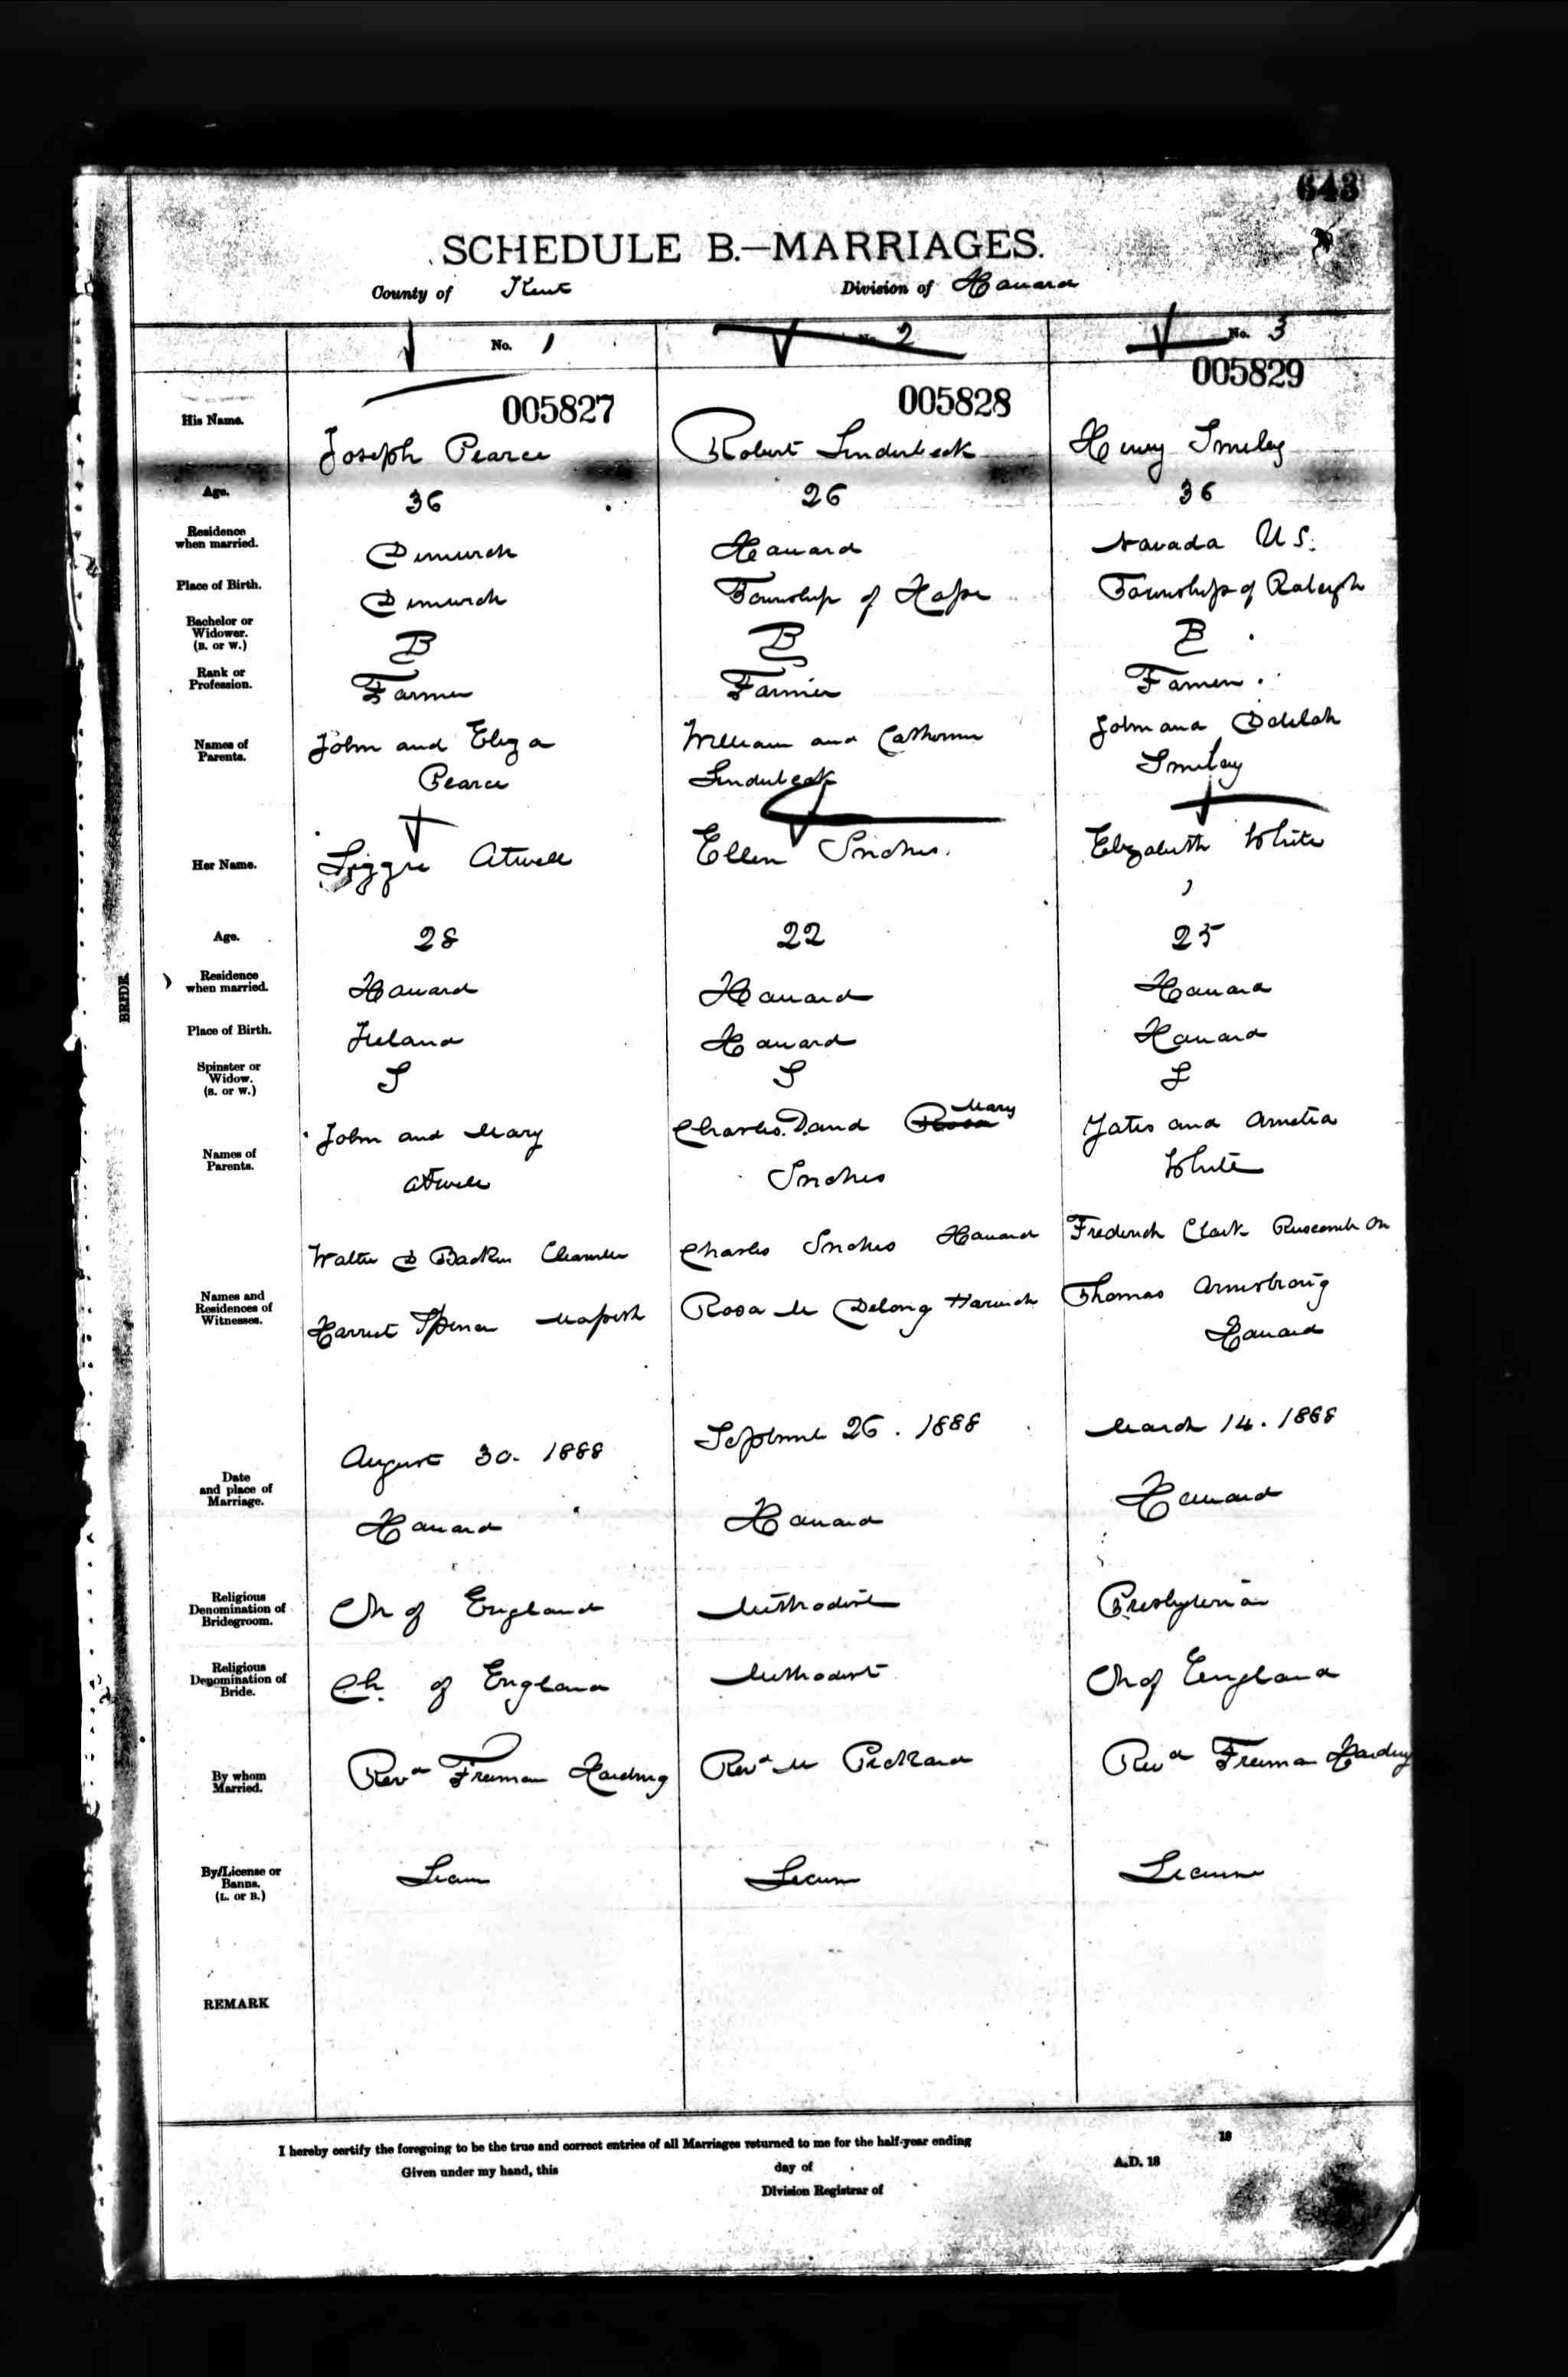 643
SCHEDULE B.—MARRIAGES.
County of Kent Division of Howard
No. 1 No. 2 No. 3
005827 005828 005829
His Name. Joseph Pearce Robert Linderbeck Henry Smiley
Age. 36 26 36
Residence when married. Howard Navada U S.
Place of Birth. Township of Township of Raleigh
Bachelor or Widower. (B. or W.) B B B
Rank or Profession. Farmer Farmer Farmer
Names of Parents. John and Eliza William and Catherine John and Delilah
Pearce Linderbeck Smiley
Her Name. Lizzie Atwell Ellen Elizabeth White
Age. 28 22 25
BRIDE
Residence when married. Howard Howard Howard
Place of Birth. Ireland Howard Howard
Spinster or Widow. (S. or W.) S S S
Names of Parents. John and Mary Charles D. and Rosa Mary Yates and Amelia
Atwell White
Names and Residences of Witnesses. Walter Charles Howard Frederick Clark Ruscomb On
Harriet Rosa M Delong Harwich Thomas Armstrong
Howard
Date and place of Marriage. August 30. 1888 September 26. 1888 March 14. 1888
Howard Howard Howard
Religious Denomination of Bridegroom. Ch of England Methodist Presbyterian
Religious Denomination of Bride. Ch. of England Methodist Ch of England
By whom Married. Revd Freeman Harding Revd M Pickard Revd Freeman Harding
By/License or Banns. (L. or B.) License License License
REMARK
I hereby certify the foregoing to be the true and correct entries of all Marriages returned to me for the half-year ending 18
Given under my hand, this day of A.D. 18
Division Registrar of